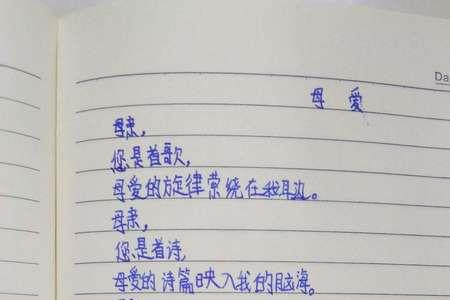 Da
母爱
母亲,
您是首歌,
母爱的旋律萦绕在我耳边。
母亲,
您是首诗,
母爱的诗篇映入我的脑海。